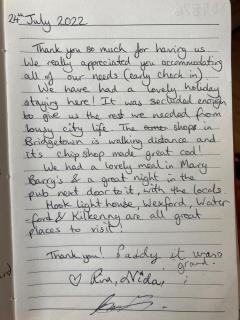 24th July 2022
Thank you so much for having us.
We really appreciated you accommodating
all of our needs (early check in).
We have had a lovely holiday
staying here! It was secluded enough
to give us the rest we needed from
busy city life. The shops in
Bridgetown is walking distance and
its chip shop made great cod!
We had a lovely meal in Mary
Barry's & a great night in the
pub next door to it, with the locals.
Hook lighthouse, Wexford, Water
-ford & Kilkenny are all great
places to visit!
Thank you! Paddy it was
grand.
Nida,